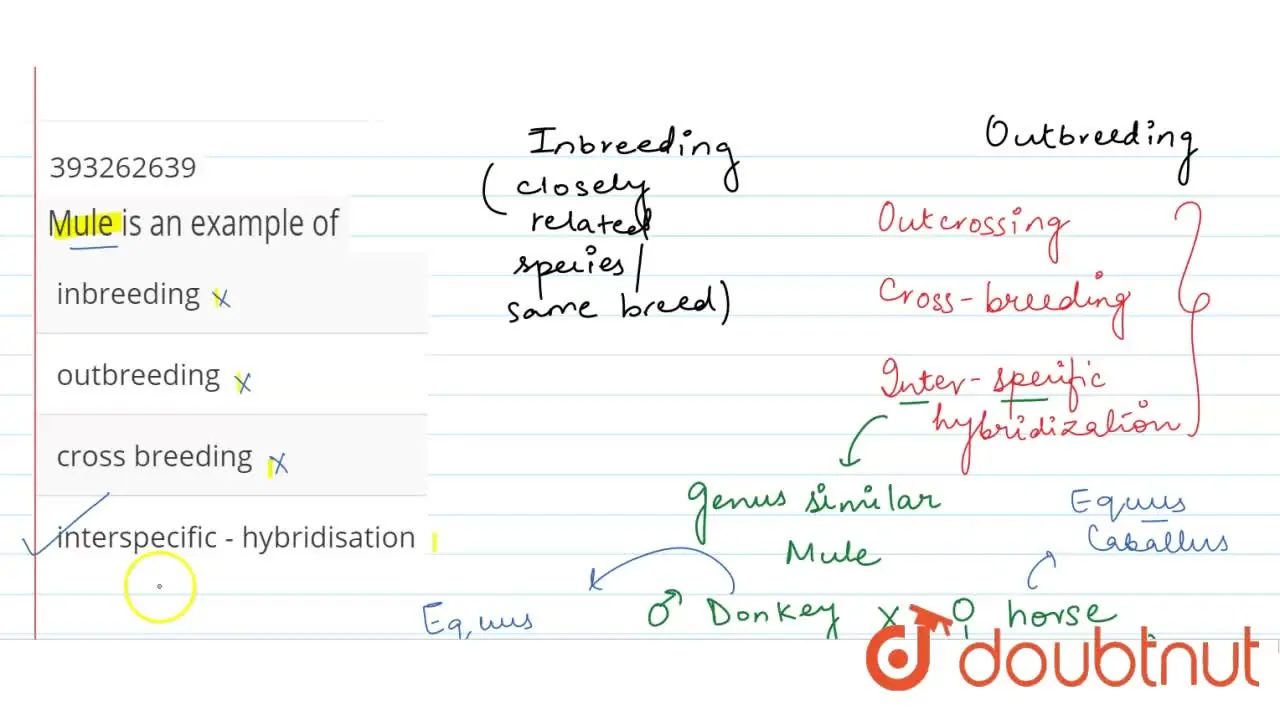 393262639
Mule is an example of
inbreeding x
outbreeding x
cross breeding x
interspecific - hybridisation
Inbreeding
(closely
related
species/
same breed)
Outbreeding
Outcrossing
Cross-breeding
Inter-specific
hybridization
genus similar
Mule
Equus
Caballus
Equus
♂ Donkey x ♀ horse
doubtnut